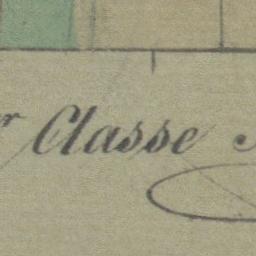 r Classe